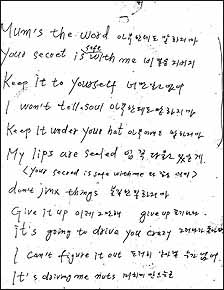 Mum's the word 아무한테도 말하지마
Your secret is safe with me 비밀 지켜줄게
Keep it to yourself 너만 알고있어
I won't tell a soul 아무한테도 말하지않을게
Keep it under your hat 아무에게도 말하지마
My lips are sealed 입 꼭 다물고 있을게
(Your secret is safe with me
don't jinx things 말하지마
Give it up 이제 그만해 give up 포기하다
it's going to drive you crazy
I can't figure it out 도저히 알 수가 없어
It's driving me nuts 미치게 만드네